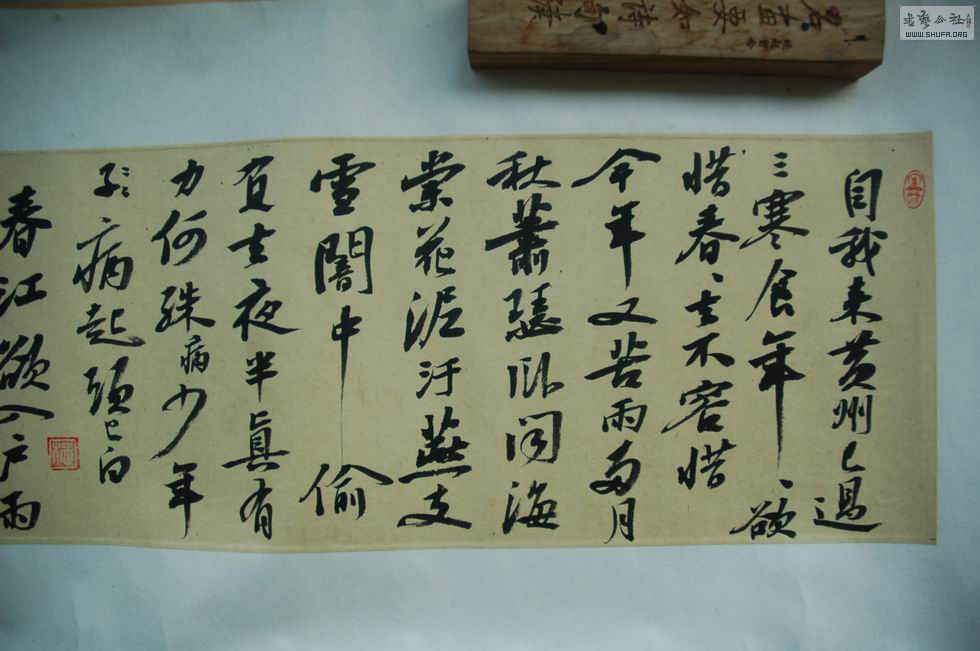 自我来黄州已過
三寒食年〻欲
惜春〻去不容惜
今年又苦雨两月
秋蕭瑟卧聞海
棠花泥汙燕支
雪闇中偷
負去夜半真有
力何殊病少年
子病起頭已白
春江欲入户雨
書藝公社
WWW.SHUFA.ORG